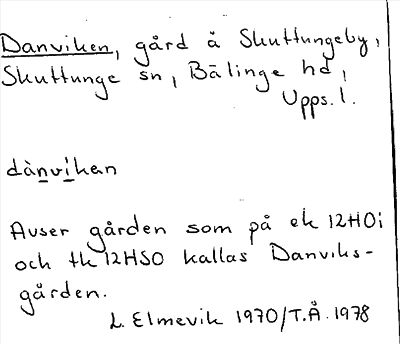 Danviken, gård å Skuttungeby,
Skuttunge sn, Bälinge hd,
Upps. l.
dànviken
Avser gården som på ek 12H0i
och tk 12HSO kallas Danviks-
gården.
L. Elmevik 1970/T.Å. 1978